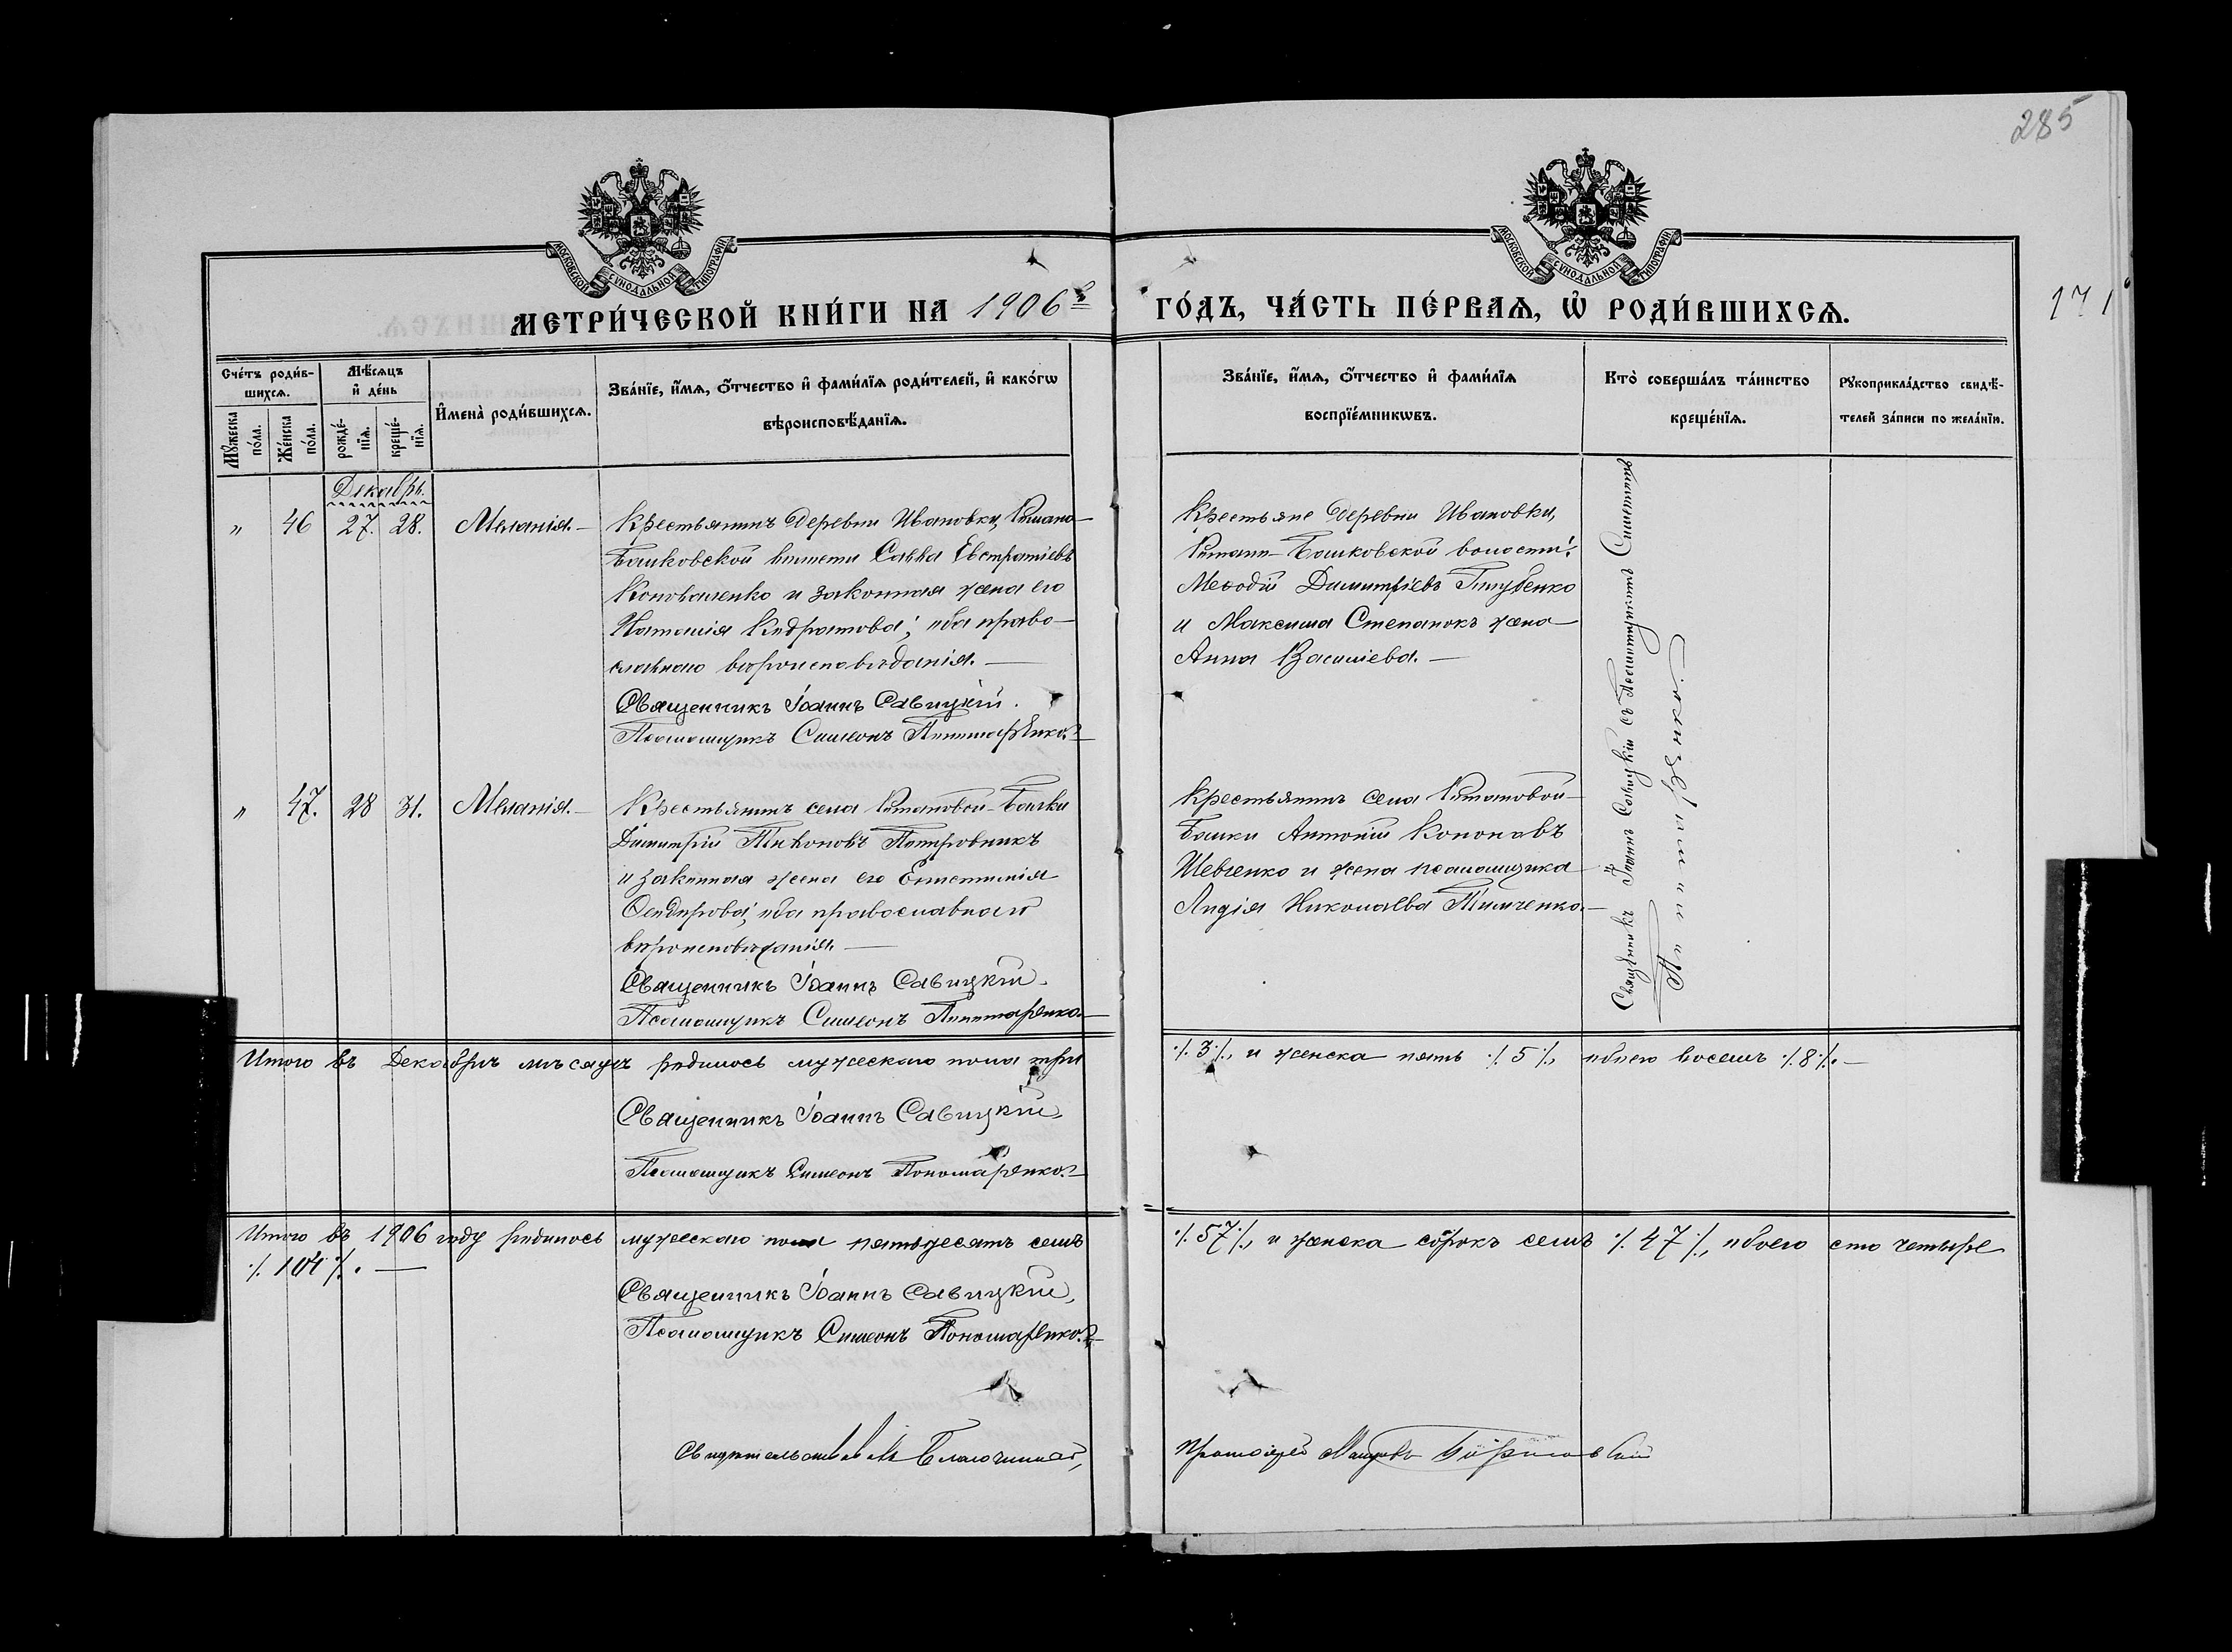 285
171
МОСКОВСКОЙ СУНОДАЛЬНОЙ ТИПОГРАФІИ
МОСКОВСКОЙ СУНОДАЛЬНОЙ ТИПОГРАФІИ
МЕТРИ́ЧЕСКОЙ КНИ́ГИ НА 1906 г.
ГО́ДЪ, ЧА́СТЬ ПЕ́РВАѦ, Ѽ РОДИ́ВШИХСѦ.
Сче́тъ роди́в-
шихсѧ.
Мꙋ́жеска по́ла.
Же́нска по́ла.
Мѣ́сѧцъ
и҆ де́нь
рожде́-
нїѧ.
креще́-
нїѧ.
И҆мена̀ роди́вшихсѧ.
Зва́нїе, и҆́мѧ, ѻ҆́тчество и҆ фами́лїѧ роди́телей, и҆ како́гѡ
вѣроисповѣ́данїѧ.
Зва́нїе, и҆́мѧ, ѻ҆́тчество и҆ фами́лїѧ
воспрїе́мникѡвъ.
Кто̀ соверша́лъ та́инство
креще́нїѧ.
Рꙋкоприкла́дство свидѣ́-
телей за́писи по жела́нїю.
Декабрь.
" 46 27. 28. Меланія.—
Крестьянинъ Деревни Ивановки, Романо-
Балковской волости Савва Евстратіевъ
Коноваленко и законная жена его
Наталія Кодратова; оба право-
славнаго вѣроисповѣданія.—
Священникъ Іоаннъ Савицкій.
Псаломщикъ Симеонъ Пономаренко.
Крестьяне Деревни Ивановки,
Романо-Балковской волости:
Меѳодій Димитріевъ Голубенко
и Максима Степанокъ жена
Анна Васильева.—
Священникъ Іоаннъ Савицкій съ Псаломщикомъ Симеономъ
Пономаренкомъ.
" 47. 28 31. Меланія.—
Крестьянинъ села Романовой-Балки
Димитрій Тихоновъ Патровникъ
и законная жена его
Ѳеодорова; оба православнаго
вѣроисповѣданія.—
Священникъ Іоаннъ Савицкій.
Псаломщикъ Симеонъ Пономаренко.
Крестьянинъ села Романовой-
Балки Антоній Кононовъ
Шевченко и жена псаломщика
Лидія Николаева Тимченко.—
Итого въ Декабрѣ мѣсяцѣ родилось мужескаго пола три
·/. 3 ·/., и женска пять ·/. 5 ·/., обоего восемь ·/. 8 ·/.—
Священникъ Іоаннъ Савицкій.
Псаломщикъ Симеонъ Пономаренко.
Итого въ 1906 году родилось мужескаго пола пятьдесятъ семь
·/. 57 ·/., и женска сорокъ семь ·/. 47 ·/., обоего сто четыре
·/. 104 ·/.—
Священникъ Іоаннъ Савицкій,
Псаломщикъ Симеонъ Пономаренко.
Благочинный,
Протоіерей